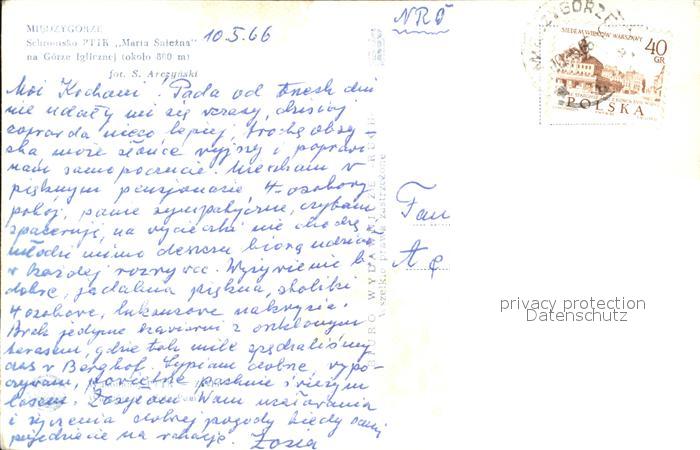 MIĘDZYGÓRZE
Schronisko PTTK „Maria Śnieżna"
na Górze Iglicznej (około 800 m)
fot. S. Arczyński
10.5.66
NRF
MIĘDZYGÓRZE
SIEDEM WIEKÓW WARSZAWY
40
GR
POLSKA
Moi Kochani! Pada od trzech dni
nie udały mi się wczasy, dzisiaj
coprawda nieco lepiej, trochę
może słońce wyjrzy i poprawi
nam samopoczucie. Mieszkam w
pięknym pensjonacie 4-osobowy
pokój, panie sympatyczne, czytam
spaceruję, na wycieczki nie chodzę
młodzi mimo deszczu biorą udział
w każdej Wyżywienie b.
dobre, jadalnia piękna, stoliki
4 osobowe, luksusowe nakrycie.
Brak jedynie kawiarni z oszklonym
tarasem, gdzie tak mile spędzaliśmy
czas w Berghof. Sypiam dobrze, wypo-
czywam, powietrze pachnie świeżym
lasem. Zasyłam Wam ucałowania
i życzenia dobrej pogody kiedy sami
pojedziecie na wakacje. Zosia
BIURO WYDAWNICZE „RUCH"
Wszelkie prawa zastrzeżone
Fau
privacy protection
Datenschutz